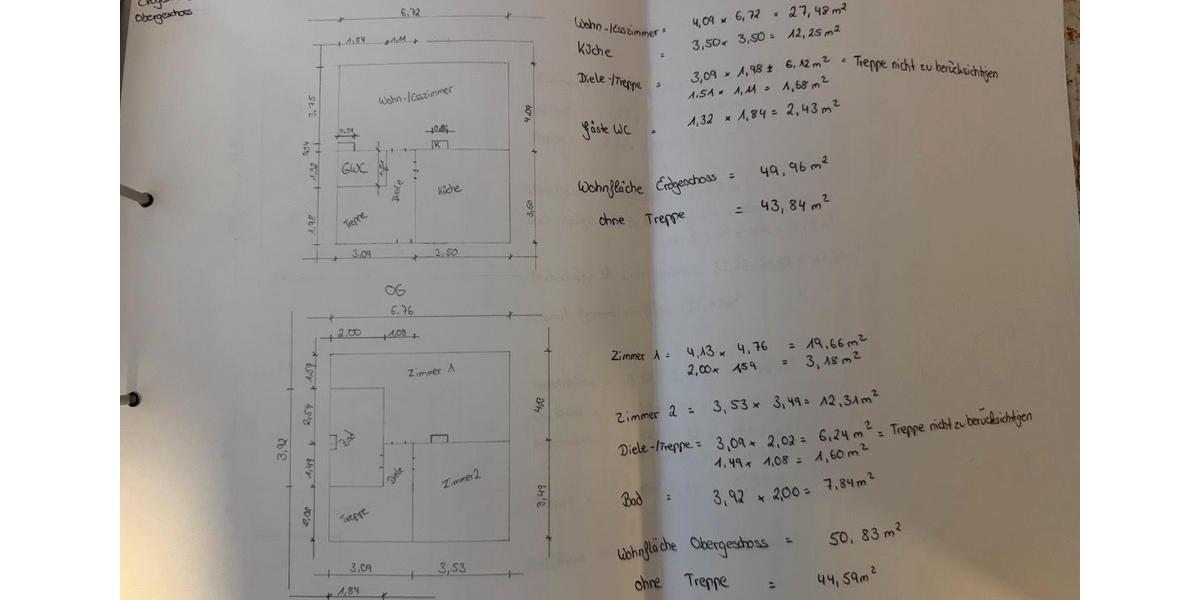 Obergeschoss
6.72
1,84 1,11
Wohn-/esszimmer
2,75
4,09
0,51
GWC
K
1,32
Diele
Küche
Treppe
1,98
3,50
3,09 3,50
OG
6.76
2.00 1,08
1,59
Zimmer 1
2,54
4,13
3,92
Bad
1,49
Diele
Zimmer 2
3,49
Treppe
3,09 3,53
1,84
Wohn-/esszimmer = 4,09 x 6,72 = 27,48 m²
Küche = 3,50 x 3,50 = 12,25 m²
Diele-/Treppe = 3,09 x 1,98 = 6,12 m² = Treppe nicht zu berücksichtigen
1.51 x 1,11 = 1,68 m²
Gäste WC = 1,32 x 1,84 = 2,43 m²
Wohnfläche Erdgeschoss = 49,96 m²
ohne Treppe = 43,84 m²
Zimmer 1 = 4,13 x 4,76 = 19.66 m²
2,00 x 1,59 = 3,18 m²
Zimmer 2 = 3,53 x 3,49 = 12,31 m²
Diele-/Treppe = 3,09 x 2,02 = 6,24 m² = Treppe nicht zu berücksichtigen
1.49 x 1,08 = 1,60 m²
Bad = 3,92 x 2,00 = 7,84 m²
Wohnfläche Obergeschoss = 50,83 m²
ohne Treppe = 44,59 m²